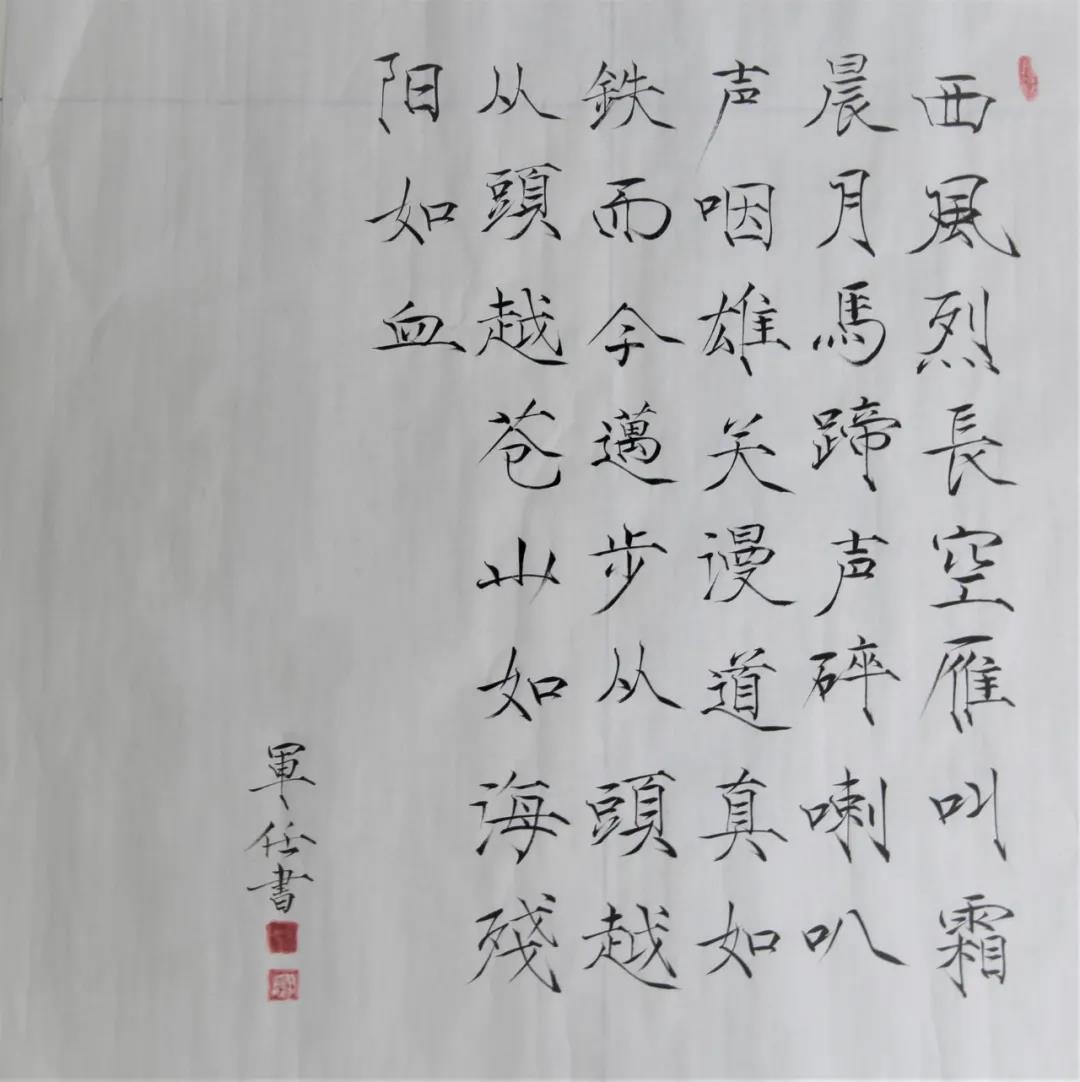 西風烈長空雁叫霜
晨月馬蹄声碎喇叭
声咽雄关漫道真如
鉄而今邁步从頭越
从頭越苍山如海残
阳如血
軍任書